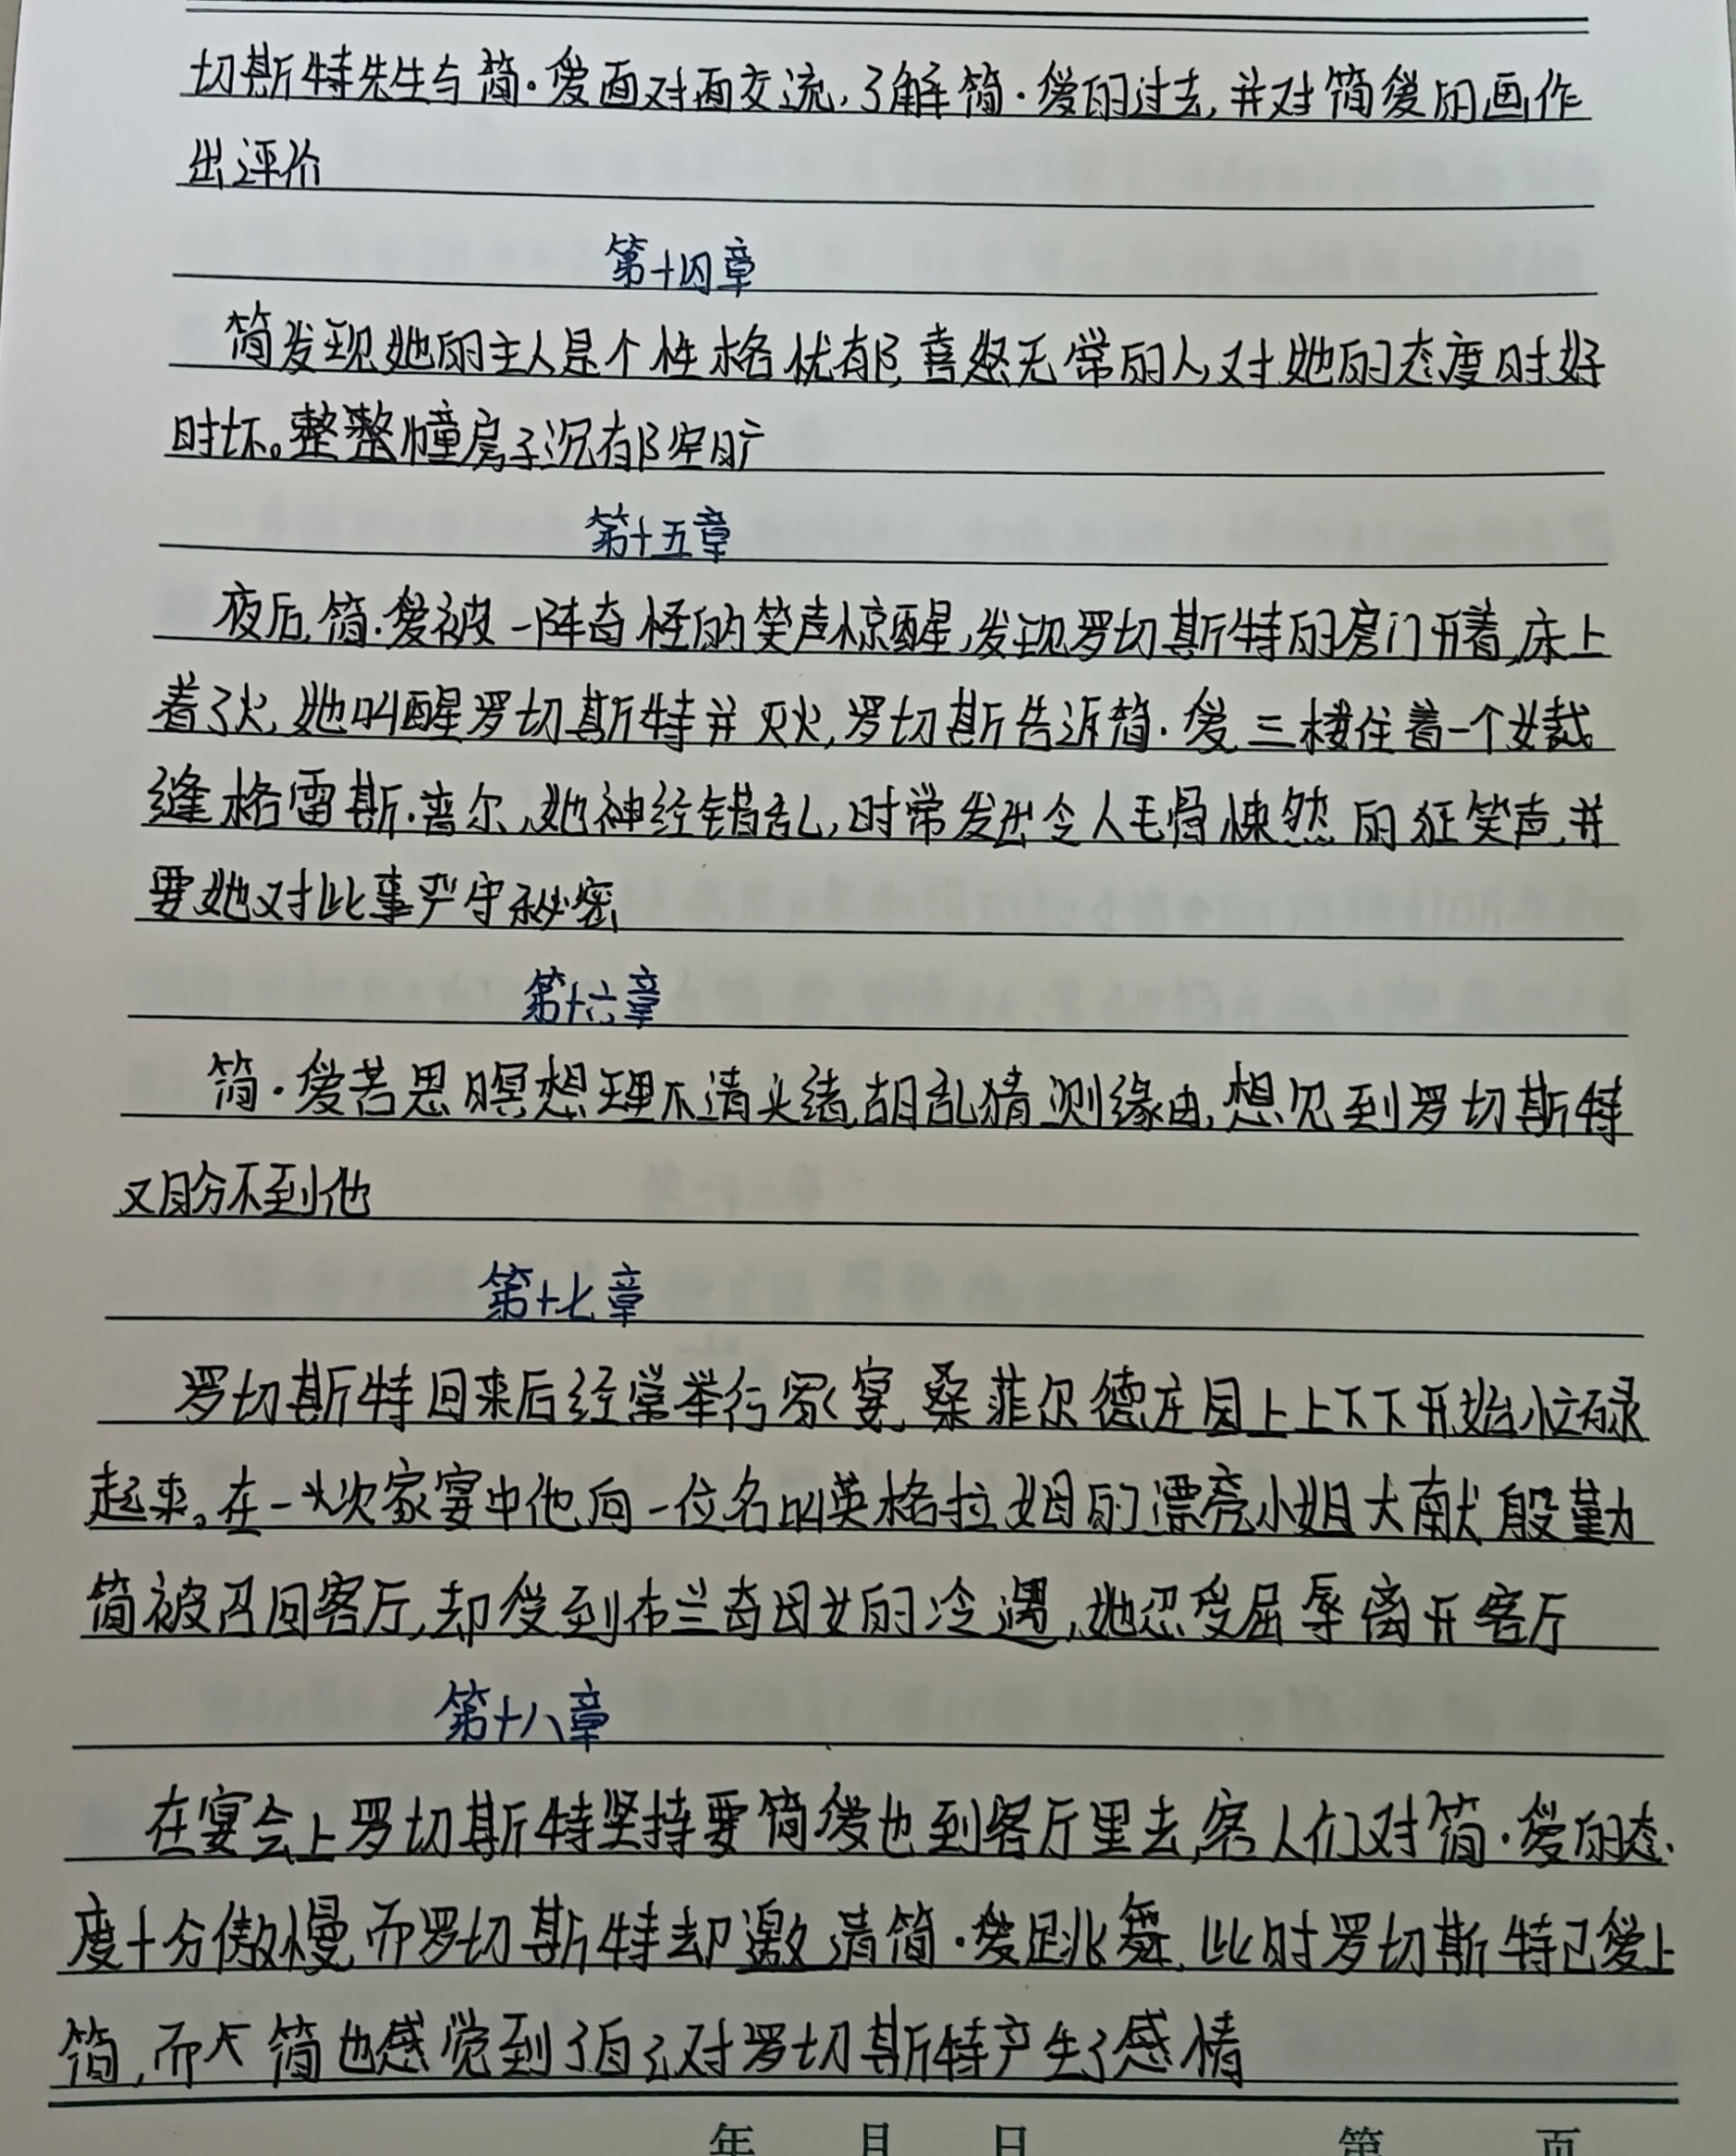 切斯特先生与简·爱面对面交流,了解简·爱的过去,并对简爱的画作
出评价
第十四章
简发现她的主人是个性格忧郁,喜怒无常的人,对她的态度时好
时坏。整整幢房子沉郁空旷
第十五章
夜后,简·爱被一阵奇怪的笑声惊醒,发现罗切斯特的房门开着,床上
着了火,她叫醒罗切斯特并灭火,罗切斯告诉简·爱三楼住着一个女裁
缝格雷斯·普尔,她神经错乱,时常发出令人毛骨悚然的狂笑声,并
要她对此事严守秘密
第十六章
简·爱苦思暝想理不清头绪,胡乱猜测缘由,想见到罗切斯特
又盼不到他
第十七章
罗切斯特回来后经常举行家宴,桑菲尔德庄园上上下下开始忙碌
起来。在一次家宴中他向一位名叫英格拉姆的漂亮小姐大献殷勤
简被召回客厅,却受到布兰奇母女的冷遇,她忍受屈辱离开客厅
第十八章
在宴会上罗切斯特坚持要简·爱也到客厅里去,客人们对简·爱的态
度十分傲慢,而罗切斯特却邀请简·爱跳舞,此时罗切斯特已爱上
简,而简也感觉到了自己对罗切斯特产生了感情
年 月 日 第 页